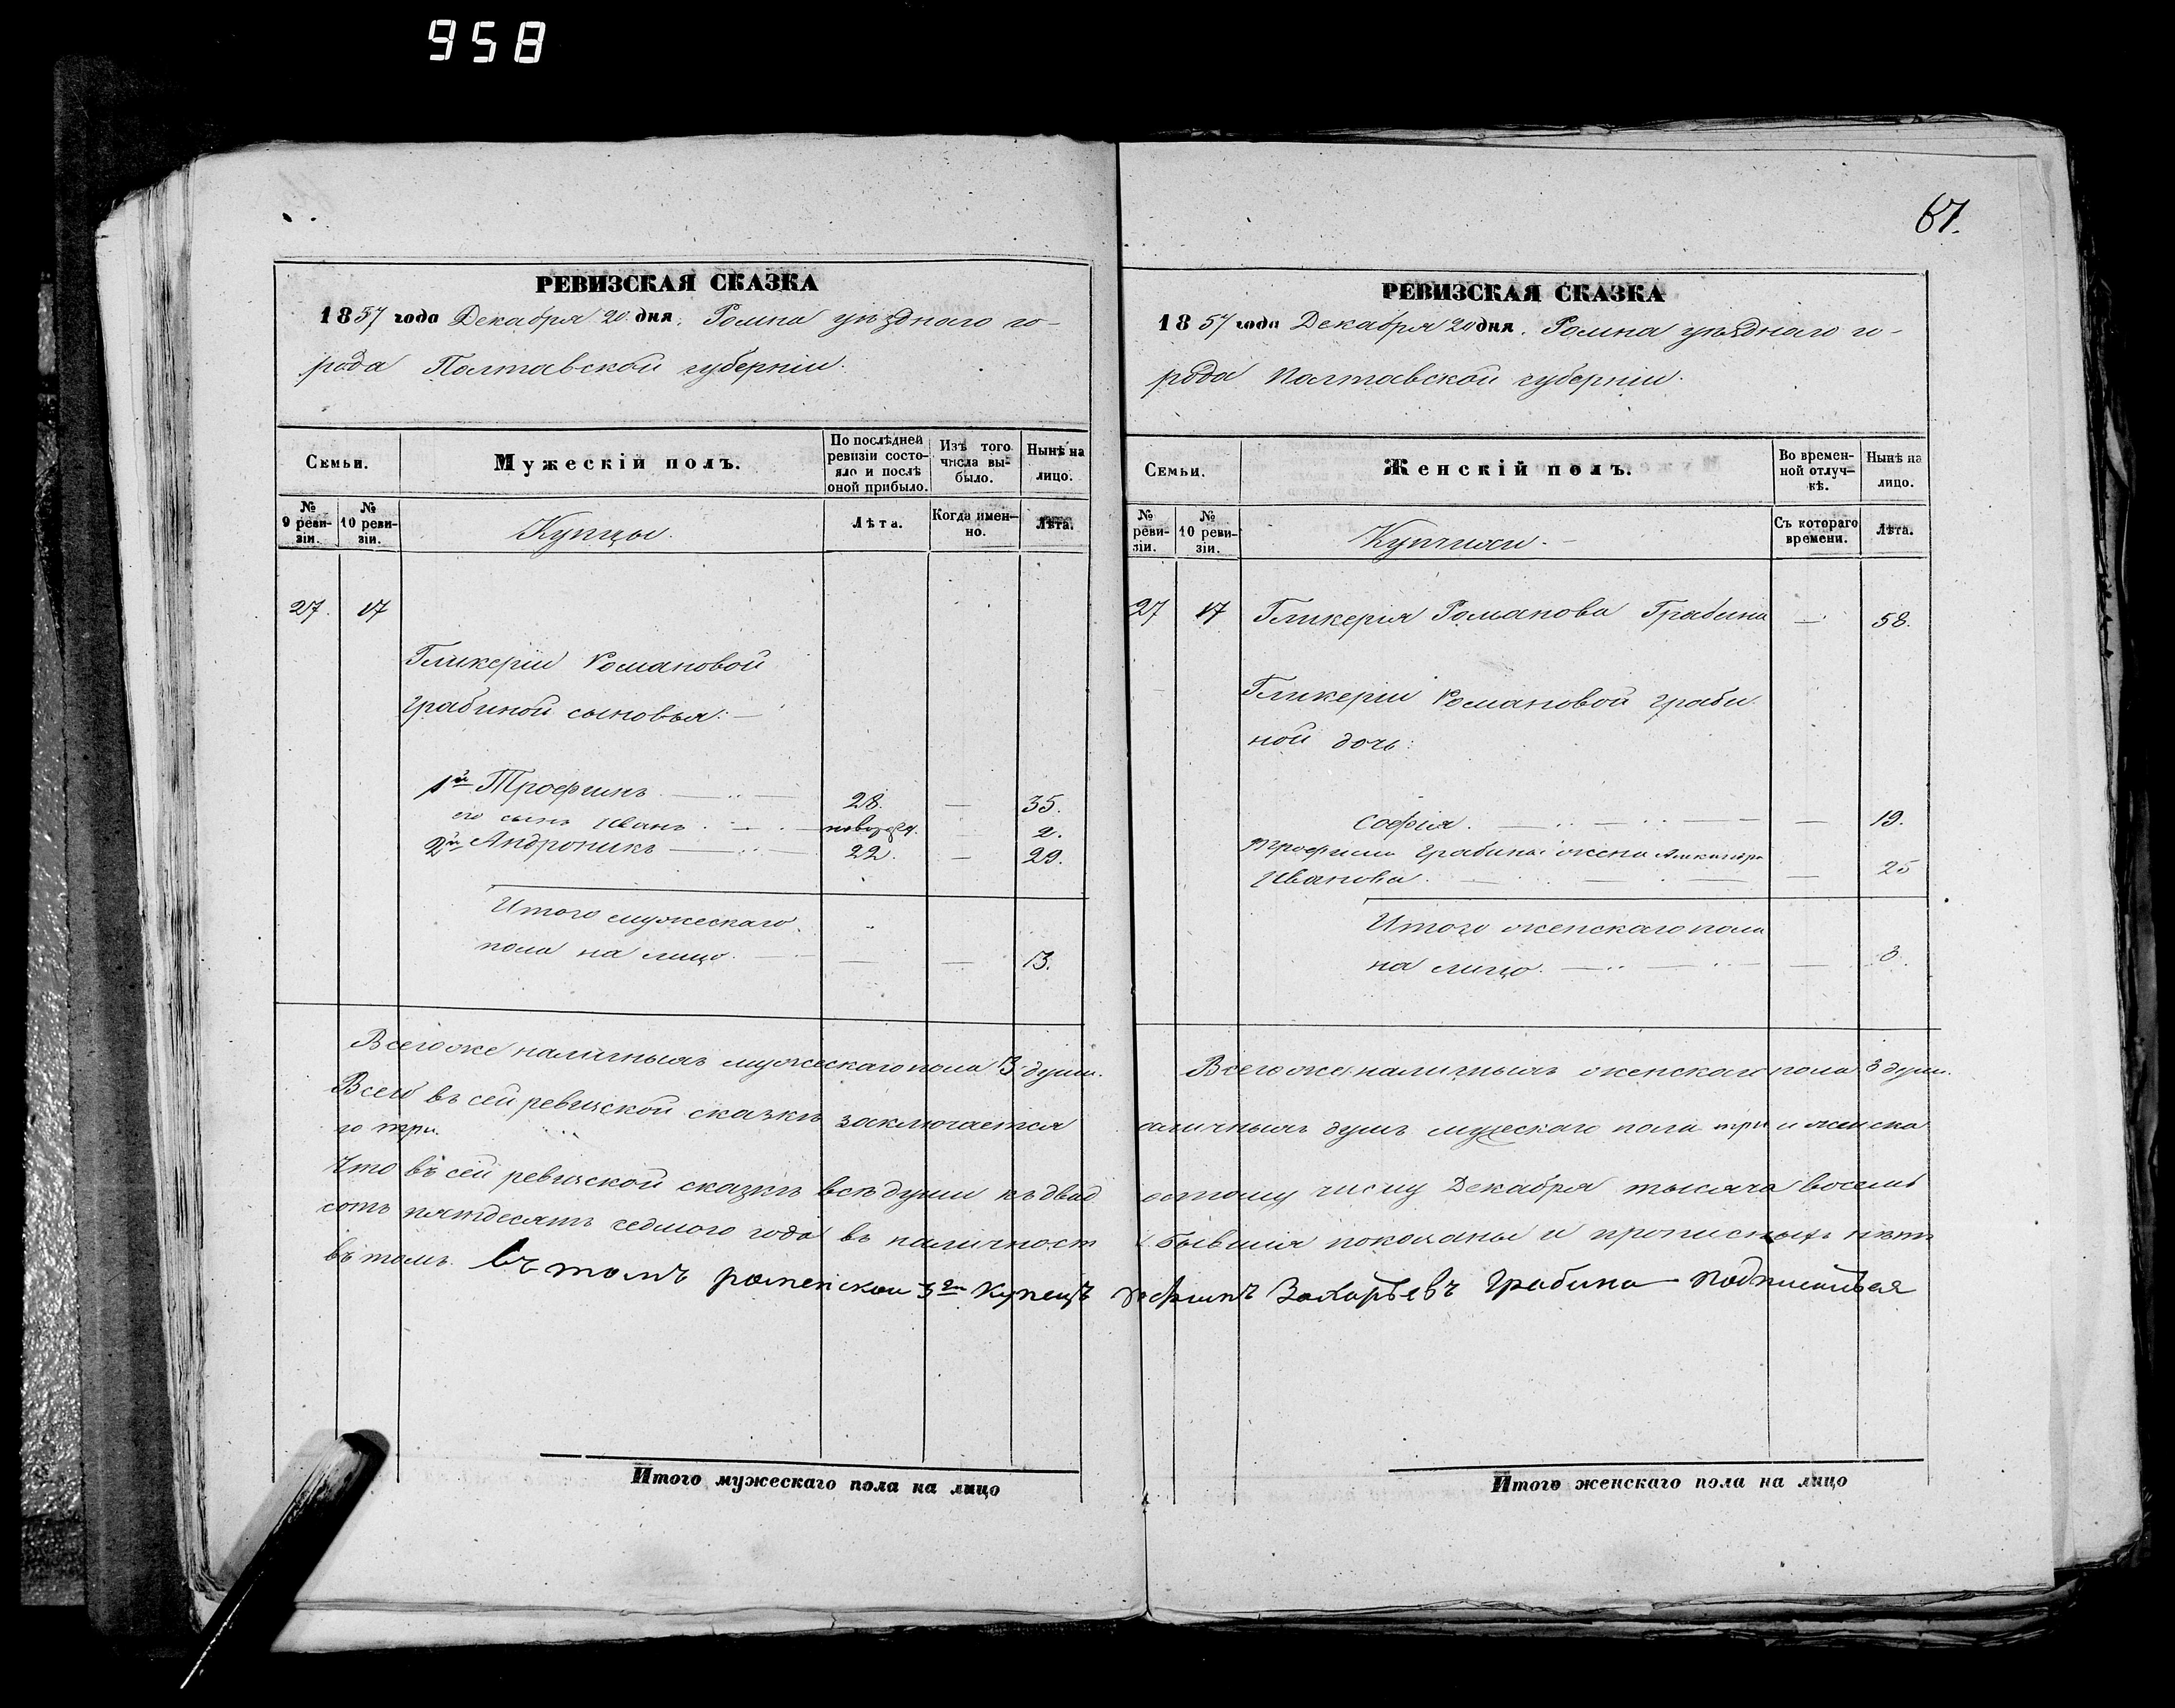 958
67.
РЕВИЗСКАЯ СКАЗКА
1857 года Декабря 20 дня. Ромна уѣзднаго го-
рода Полтавской губерніи.
Семьи.
Мужескій полъ.
По послѣдней ревизіи состо-
яло и послѣ
оной прибыло.
Изъ того
числа вы-
было.
Нынѣ на
лицо.
№
9 реви-
зіи.
№
10 реви-
зіи.
Купцы.
Лѣта.
Когда имен-
но.
Лѣта.
27. 17
Гликеріи Романовой
Грабиной сыновья:
1й Трофимъ 28. — 35.
его сынъ Иванъ новорожд. — 2.
2й Андроникъ 22. — 29.
Итого мужескаго
пола на лицо. — — 3.
РЕВИЗСКАЯ СКАЗКА
1857 года Декабря 20 дня. Ромна уѣзднаго го-
рода Полтавской губерніи.
Семьи.
Женскій полъ.
Во времен-
ной отлуч-
кѣ.
Нынѣ на
лицо.
№
реви-
зіи.
№
10 реви-
зіи.
Купчихи.
Съ котораго
времени.
Лѣта.
27 17 Гликерія Романова Грабина — 58.
Гликеріи Романовой Граби
ной дочь:
Софія. — 19.
Трофима Грабины жена Александра
Иванова. — 25
Итого женскаго пола
на лицо. — 3.
Всего же наличныхъ мужескаго пола 3 души.
Всего же наличныхъ женскаго пола 3 души.
Всего въ сей ревизской сказкѣ заключается наличныхъ душъ мужескаго пола три и женска
го три.
Что въ сей ревизской сказкѣ всѣ души къ двадцатому числу Декабря тысяча восемь
сотъ пятдесятъ седмого года въ наличности бывшія показаны и прописныхъ нѣтъ
въ томъ. Въ томъ роменской 3й купецъ Трофимъ Захарьевъ Грабина подписався
Итого мужескаго пола на лицо
Итого женскаго пола на лицо